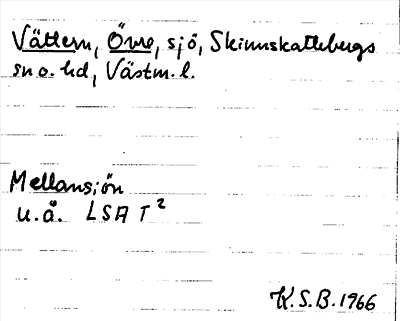 Vättern, Övre, sjö, Skinnskattebergs
sn o. hd, Västm. l.
Mellansjön
u.å. LSA T²
K.S.B. 1966